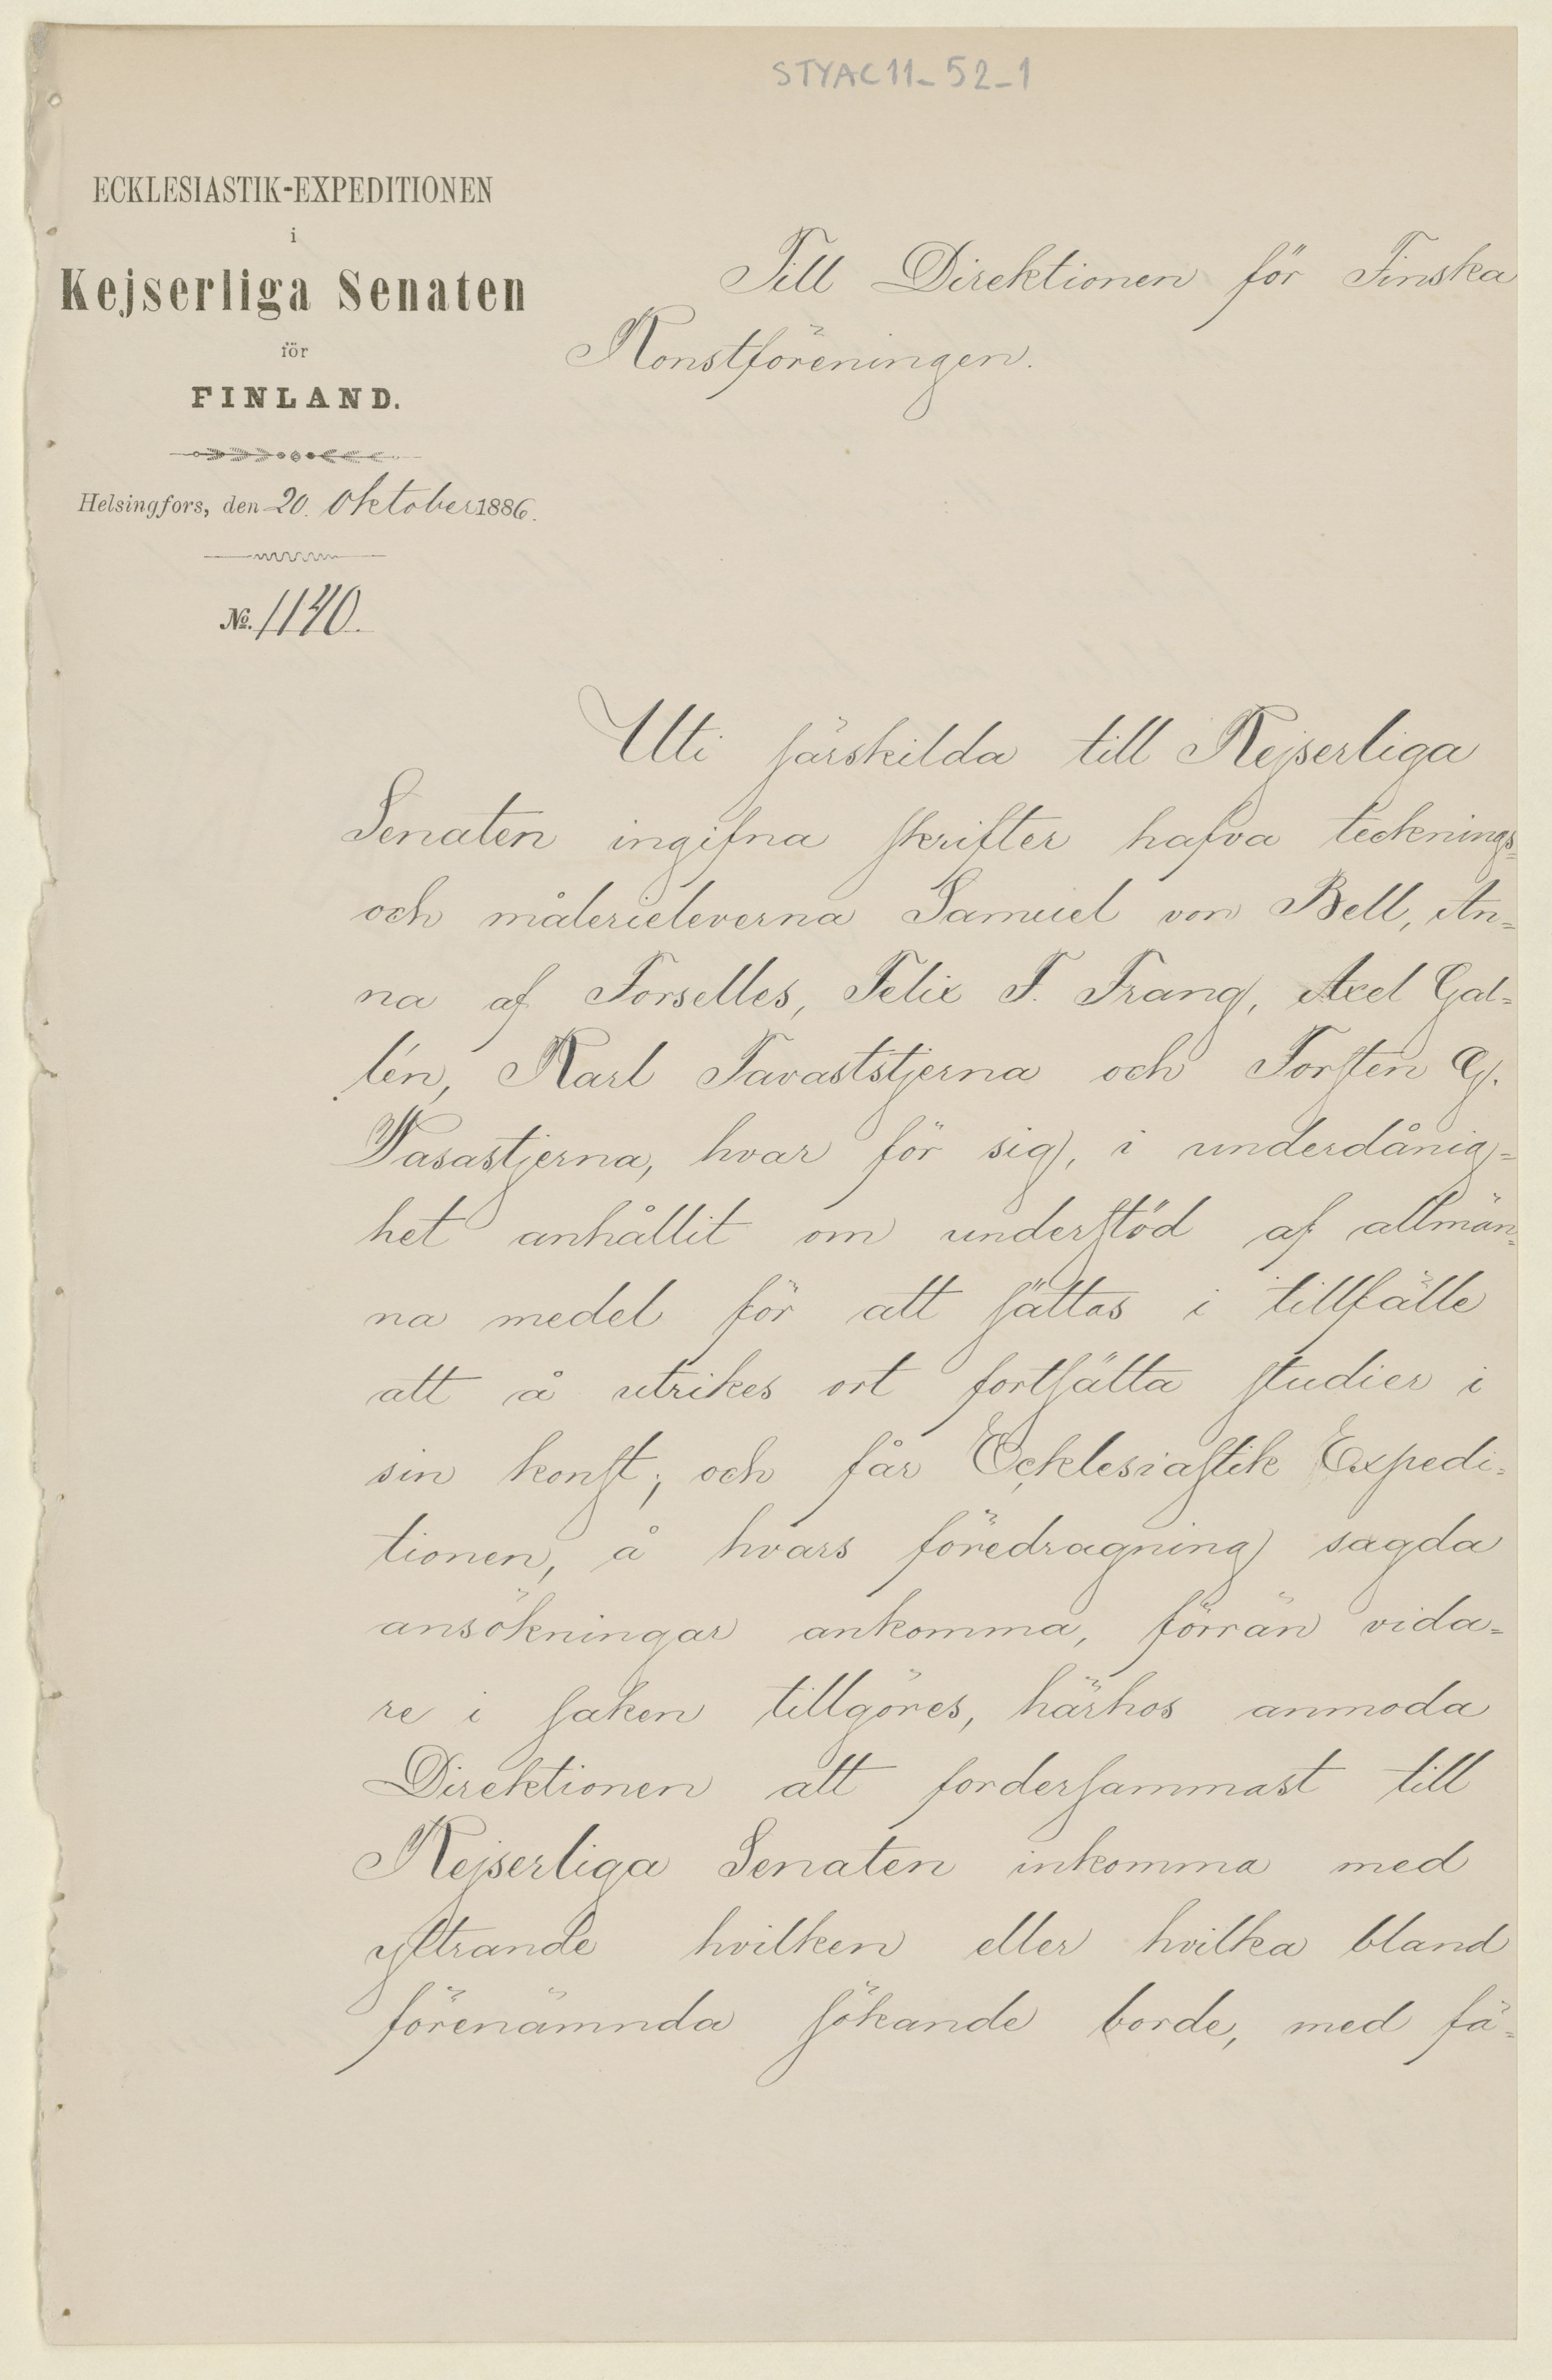 STYAC11_52_1
ECKLESIASTIK-EXPEDITIONEN
i
Kejserliga Senaten
för
FINLAND.
Helsingfors, den 20. Oktober 1886.
No. 1140.
Till Direktionen för Finska
Konstföreningen.
Uti särskilda till Kejserliga
Senaten ingifna skrifter hafva tecknings-
och målerieleverna Samuel von Bell, An-
na af Forselles, Felix F. Frang, Axel Gal-
lén, Karl Tavaststjerna och Torsten G.
Wasastjerna, hvar för sig, i underdånig-
het anhållit om understöd af allmän-
na medel för att sättas i tillfälle
att å utrikes ort fortsätta studier i
sin konst; och får Ecklesiastik Expedi-
tionen, å hvars föredragning sagda
ansökningar ankomma, förrän vida-
re i saken tillgöres, härhos anmoda
Direktionen att fordersammast till
Kejserliga Senaten inkomma med
yttrande hvilken eller hvilka bland
förenämnda sökande borde, med fä-